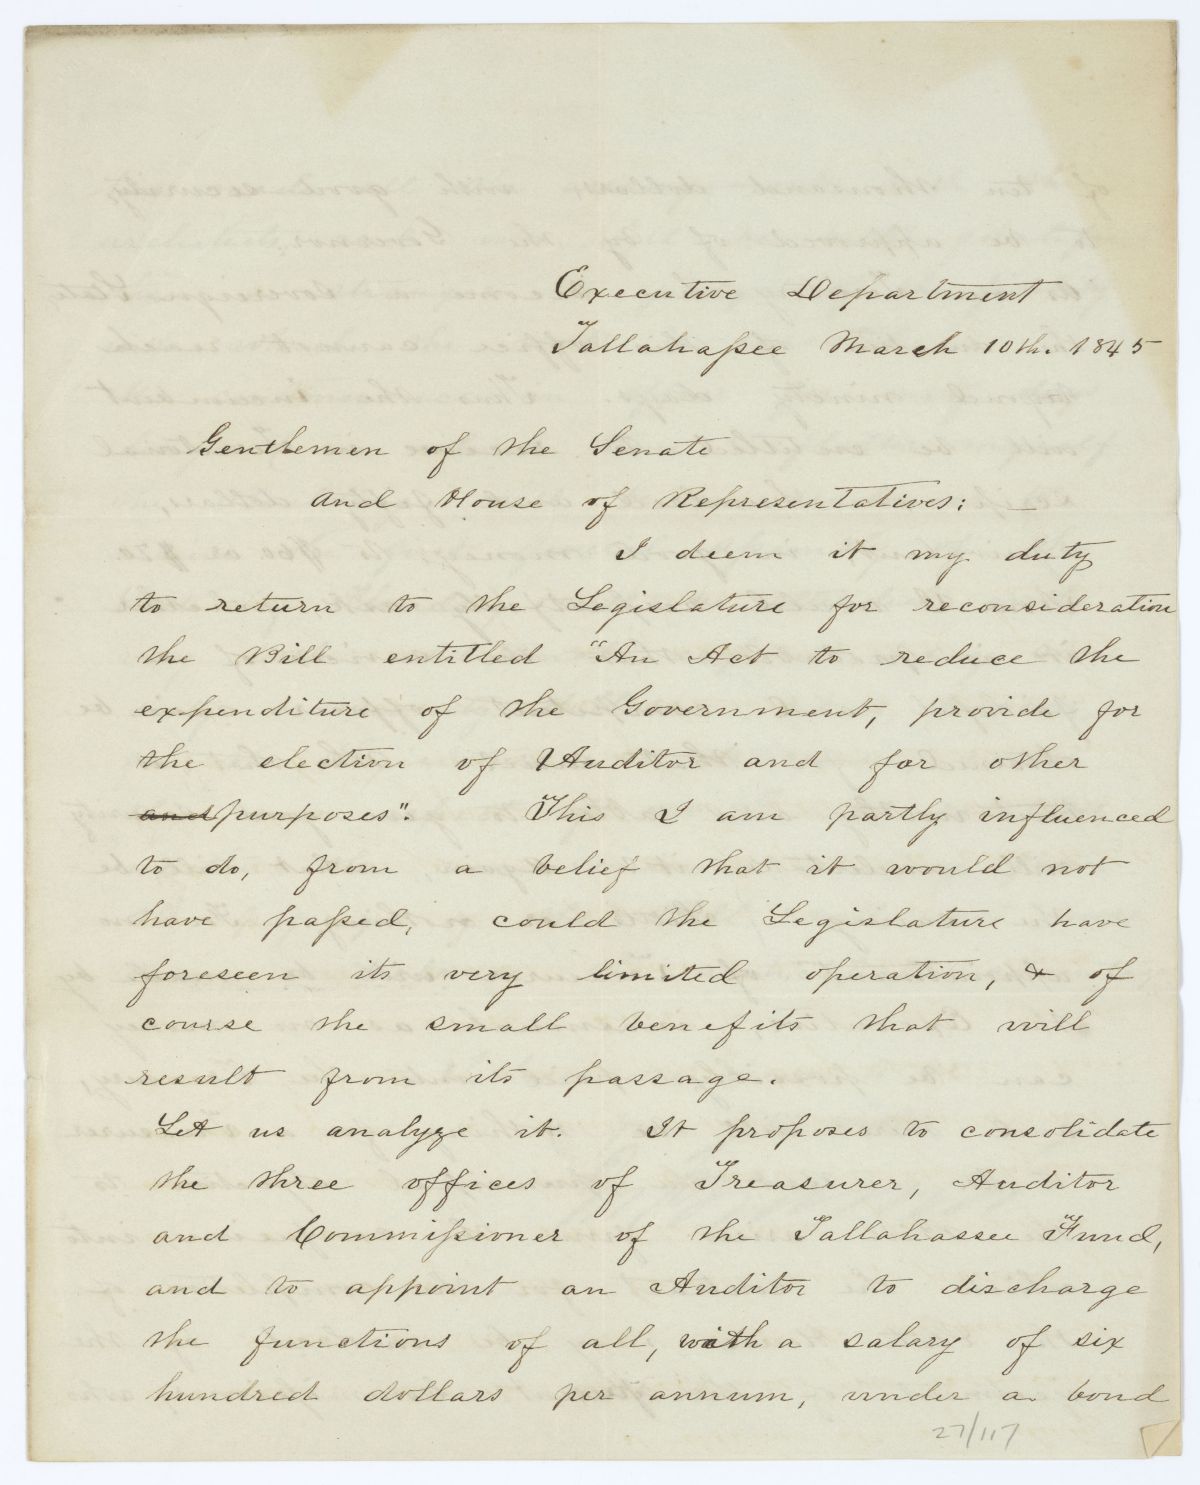 Executive Department
Tallahassee March 10th. 1845
Gentlemen of the Senate
and House of Representatives:
I deem it my duty
to return to the Legislature for reconsideration
the Bill entitled "An Act to reduce the
expenditure of the Government, provide for
the election of Auditor and for other
and purposes". This I am partly influenced
to do, from a belief that it would not
have passed, could the Legislature have
foreseen its very limited operation, & of
course the small benefits that will
result from its passage.
Let us analyze it. It proposes to consolidate
the three offices of Treasurer, Auditor
and Commissioner of the Tallahassee Fund,
and to appoint an Auditor to discharge
the functions of all, with a salary of six
hundred dollars per annum, under a bond
27/117